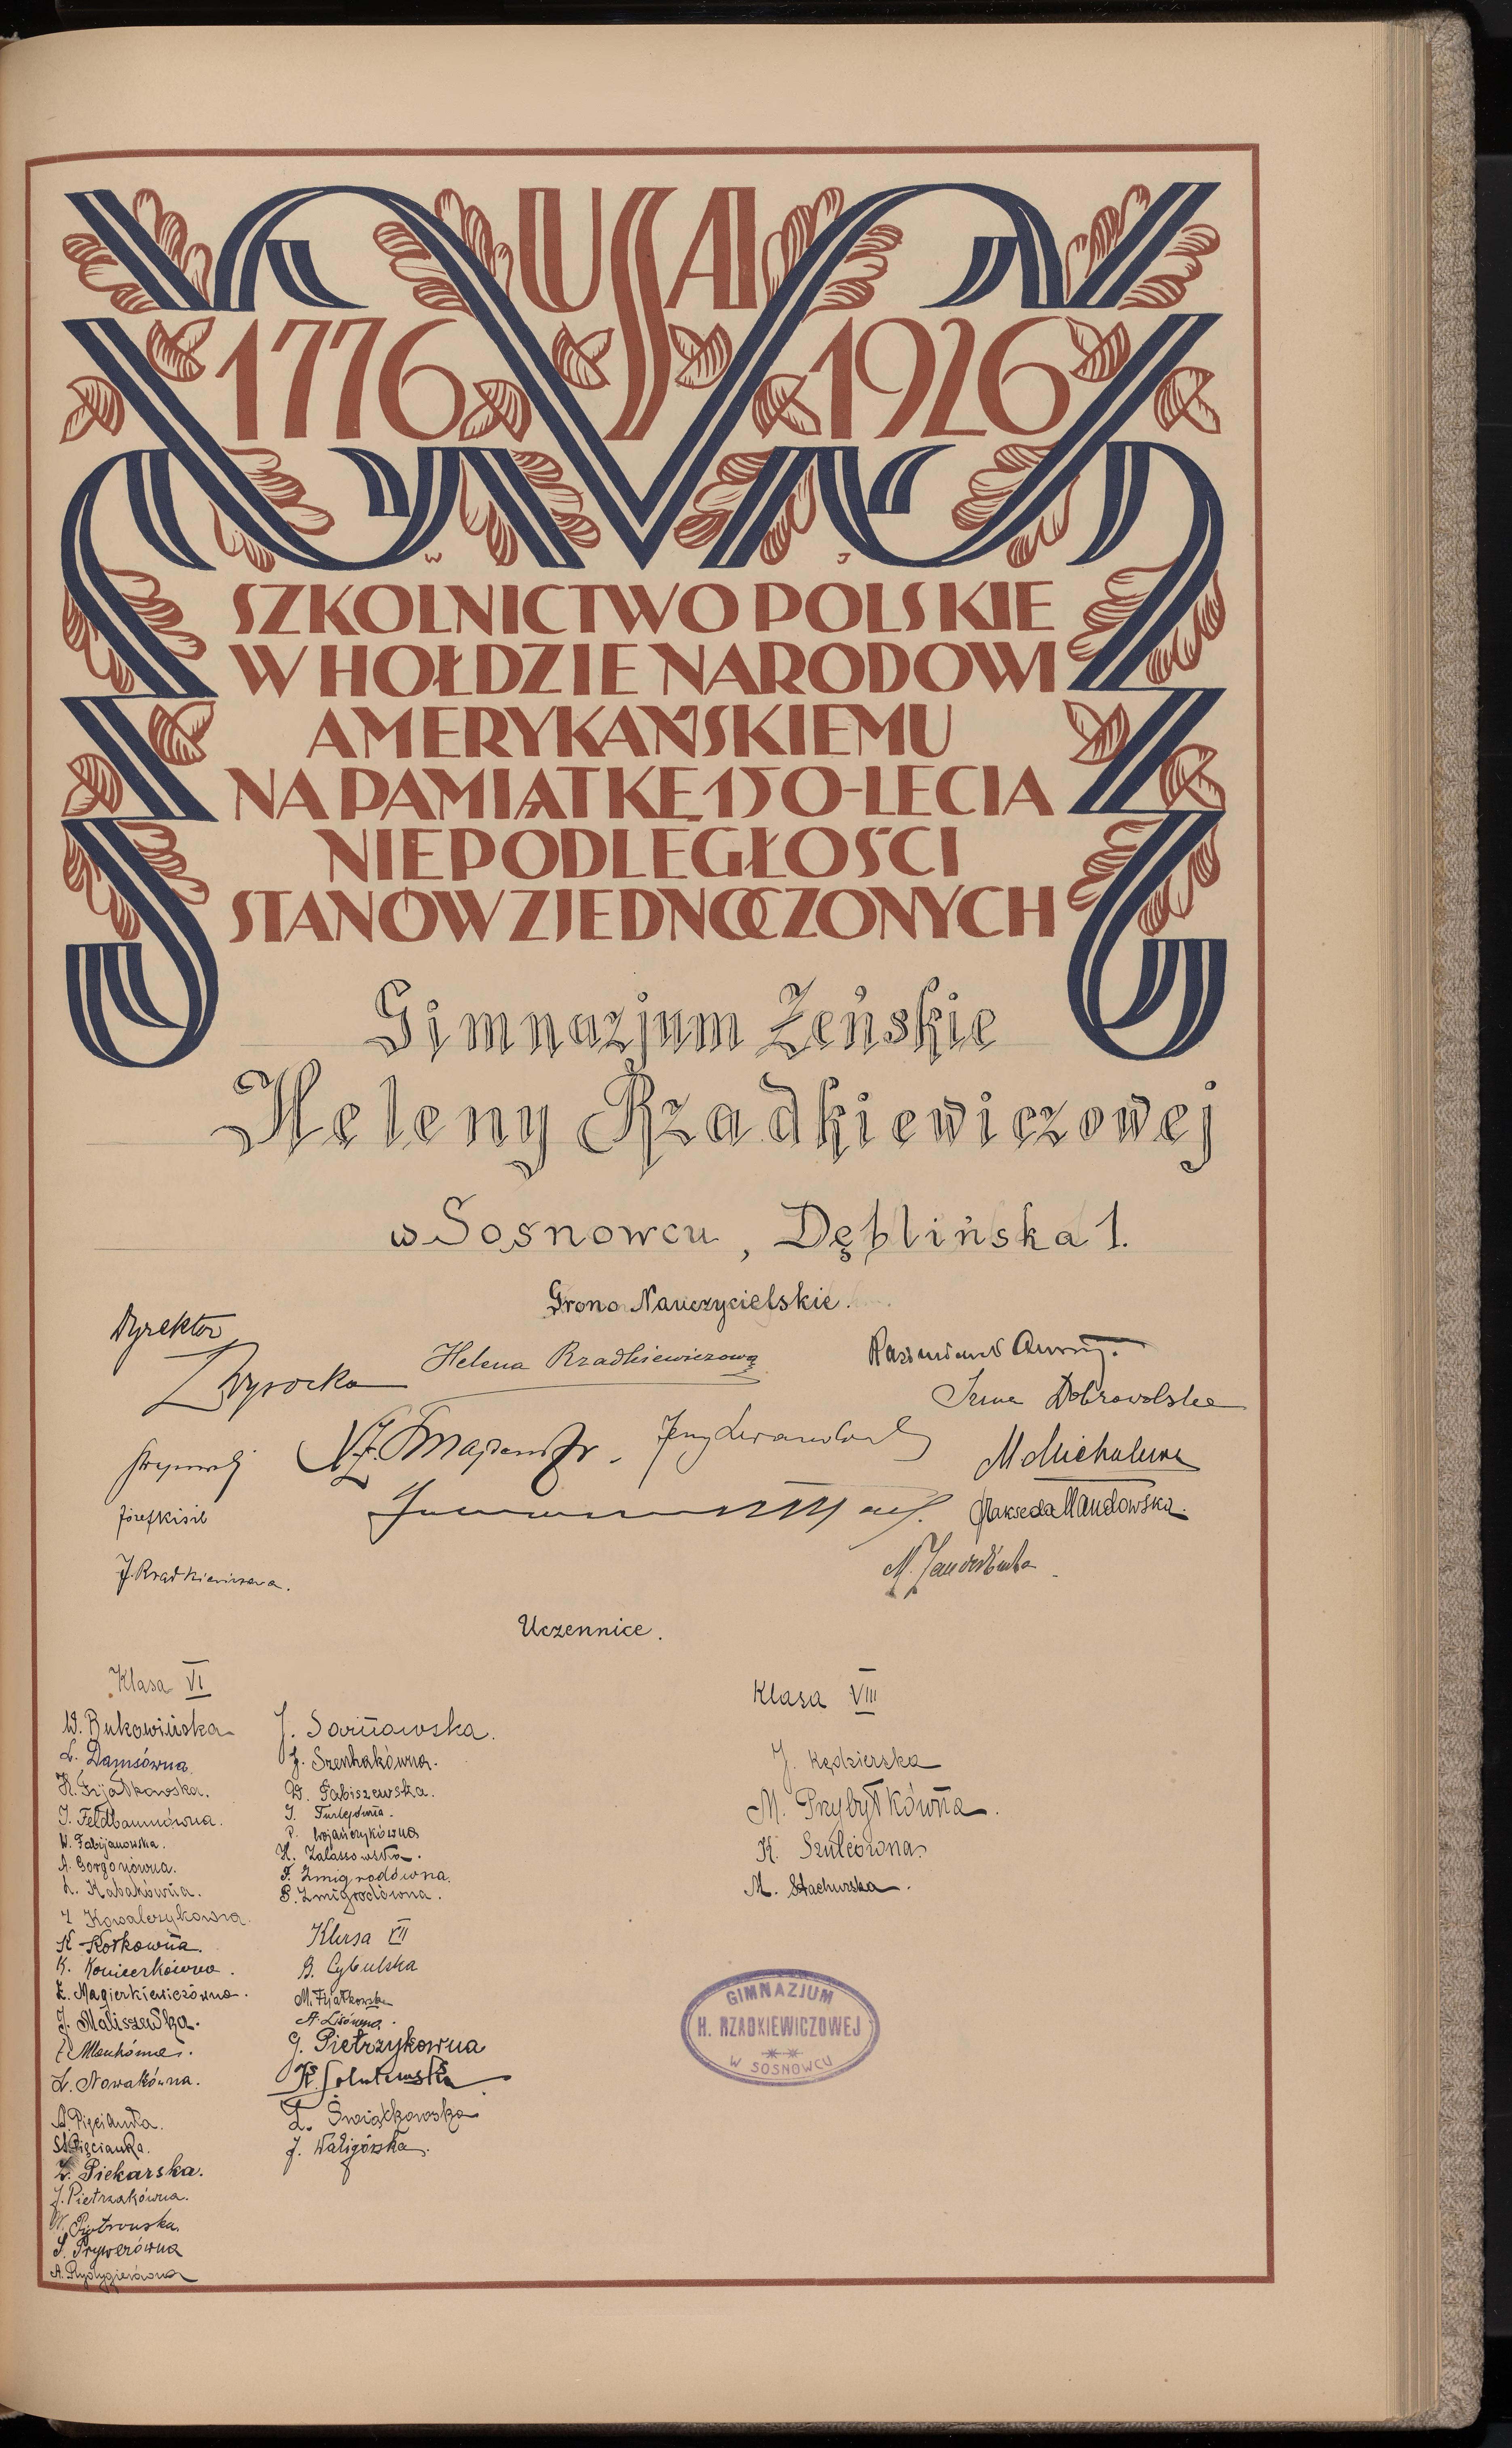 USA
1776 1926
W J
SZKOLNICTWO POLSKIE
W HOŁDZIE NARODOWI
AMERYKAŃSKIEMU
NA PAMIĄTKĘ 150-LECIA
NIEPODLEGŁOŚCI
STANÓW ZJEDNOCZONYCH
Gimnazjum Żeńskie
Heleny Rzadkiewiczowej
w Sosnowcu, Dęblińska 1.
Grono Nauczycielskie.
Dyrektor
Wysocka
Helena Rzadkiewiczowa
Irena Dobrowolska
Jerzy
Józef Kisiel
Mandowska.
J. Rzadkiewiczowa.
M.
Uczennice.
Klasa VI
W. Bukowińska
L. Damsówna
H. Fijałkowska.
J. Feldbaumówna.
W. Fabijanowska.
A. Gorgoniówna.
L. Kabakówna.
Kowalczykówna.
K. Kotkowna.
K. Koniecrkówna.
Z. Magierkiewiczówna.
J. Maliszewska.
L. Nowakówna.
A. Pięcianka.
St. Pięcianka.
Z. Piekarska.
J. Pietrzakówna.
W. Piotrowska.
S. Prywerówna
A. Przybygierówna
J. Sarnowska.
J. Szenhakówna.
W. Tabiszewska.
J. Turlejówna.
P. Wojańczykówna
H. Zalassowska.
F. Zmigrodówna.
P. Zmigrodówna.
Klasa VII
B. Cybulska
M. Fijałkowska
A. Lisówna.
G. Pietrzykowna
K.
Z. Świątkowska
J. Waligórska.
Klasa VIII
J. Kędzierska
M. Przybyłkówna.
K. Szulcówna.
M. Stachurska.
GIMNAZJUM
H. RZADKIEWICZOWEJ
W SOSNOWCU